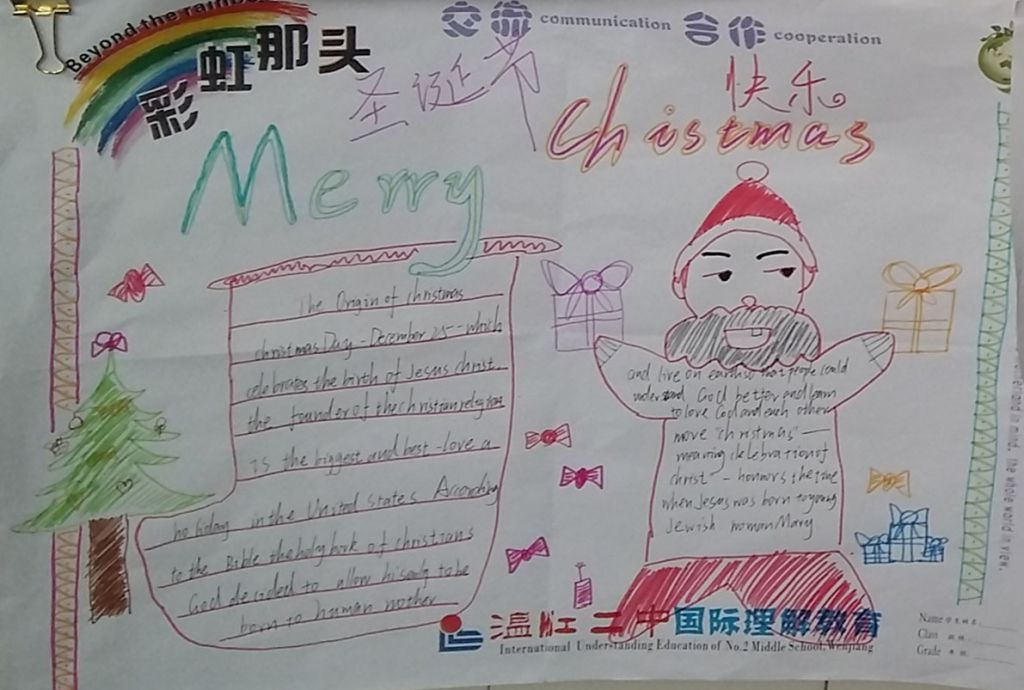 Beyond the rainbow
彩虹那头
交流 communication 合作 cooperation
圣诞节
快乐
Merry
Christmas
The Origin of christmas
christmas Day - December 25 - which
celebrates the birth of Jesus christ.
the founder of the christian religion
is the biggest and best - love a
holiday in the United States. According
to the Bible the holy book of christians
God decided to allow his only to be
born to human mother
and live on earth so that people could
understand God better and learn
to love God and each other
move "christmas" —
meaning celebration of
christ - honors the time
when Jesus was born to young
Jewish woman Mary
in mind, the whole world in view.
温江二中国际理解教育
International Understanding Education of No.2 Middle School, Wenjiang
Name 学生姓名:
Class 班级:
Grade 年级: